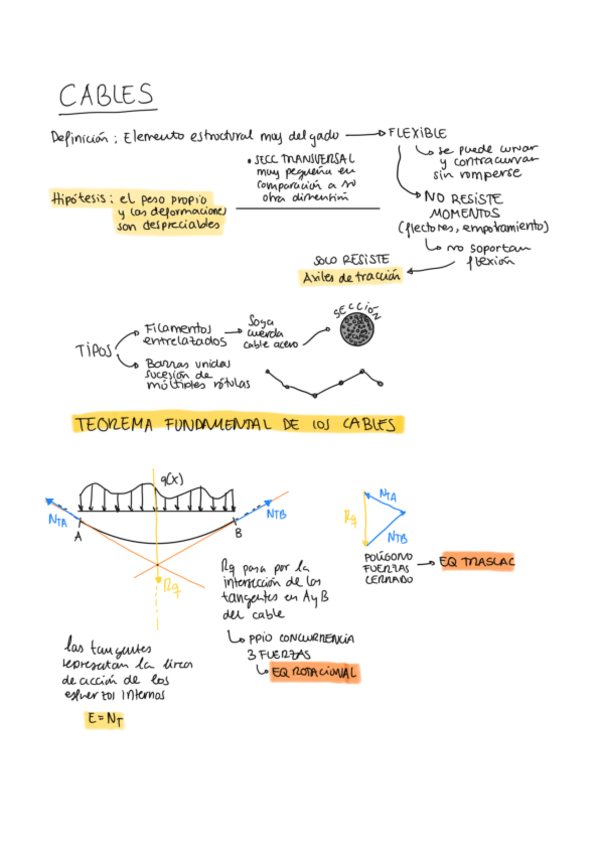 CABLES
Definición : Elemento estructural muy delgado
FLEXIBLE
se puede curvar
y contracurvar
sin romperse
• SECC TRANSVERSAL
muy pequeña en
comparación a su
otra dimensión
Hipótesis : el peso propio
y las deformaciones
son despreciables
NO RESISTE
MOMENTOS
(flectores, empotramiento)
no soportan
flexión
SOLO RESISTE
Axiles de tracción
TIPOS
Filamentos
entrelazados
Soga
cuerda
cable acero
SECCIÓN
Barras unidas
sucesión de
múltiples rótulas
TEOREMA FUNDAMENTAL DE LOS CABLES
q(x)
NTA
A
B
NTB
Rq
Rq pasa por la
intersección de los
tangentes en A y B
del cable
PPIO CONCURRENCIA
3 FUERZAS
EQ ROTACIONAL
NTA
Rq
NTB
POLÍGONO
FUERZAS
CERRADO
EQ TRASLAC
las tangentes
representan la línea
de acción de los
esfuerzos internos
E = NT